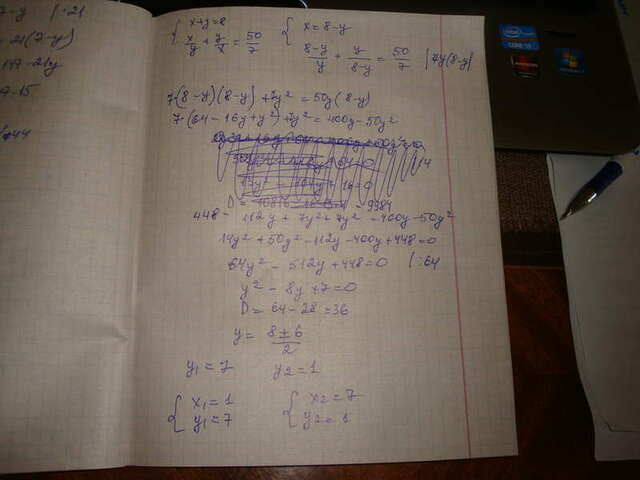 7-y |·21
21(7-y)
147-21y
7·15
44
{ x+y=8
x/y + y/x = 50/7
{ x=8-y
(8-y)/y + y/(8-y) = 50/7 |7y(8-y)
7·(8-y)(8-y)+7y²=50y(8-y)
7·(64-16y+y²)+7y²=400y-50y²
448-112y+7y²+7y²=400y-50y²
14y²+50y²-112y-400y+448=0
64y²-512y+448=0 |:64
y²-8y+7=0
D=64-28=36
y= (8±6)/2
y₁=7 y₂=1
{ x₁=1
y₁=7
{ x₂=7
y₂=1
intel
CORE i3
Windows 7